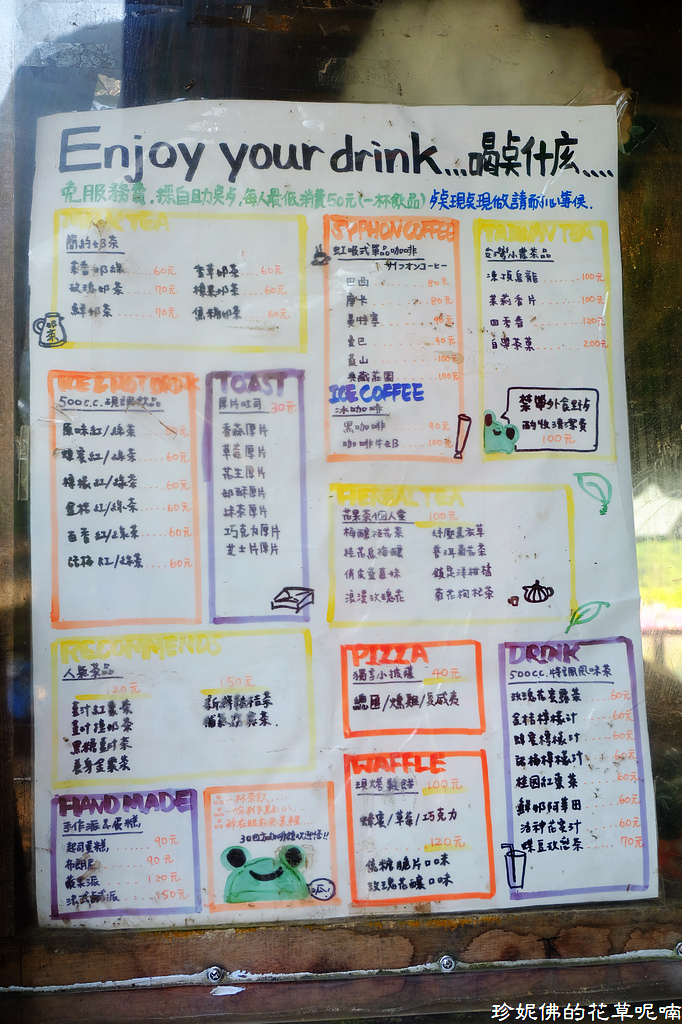 Enjoy your drink...喝桌什庅....
免服務費.採自助桌夕.每人最低消費50元(一杯飲品)
桌現桌現做請耐心等侯.
MILK TEA
簡約奶茶
60元
玫瑰奶茶......70元
鮮奶茶......70元
薰草奶茶...60元
榛果奶茶...60元
焦糖奶茶...60元
奶茶
SYPHON COFFEE
虹吸式單品咖啡
サイフオンコーヒー
巴西......80元
摩卡......80元
曼特寧......90元
90元
藍山......100元
典藏莊園......100元
ICE COFFEE
冰咖啡
黑咖啡......90元
咖啡牛奶...100元
TAIWAN TEA
台灣小農茶品
凍頂烏龍......100元
茉莉香片......100元
四季香......120元
自帶茶葉......200元
禁帶外食野夕
酌收清潔費
100元
ICE & HOT DRINK
500c.c.現調飲品
原味紅/綠茶
蜂蜜紅/綠茶...60元
檸檬紅/綠茶...60元
金桔紅/綠茶...60元
百香紅/綠茶...60元
紅/綠茶...60元
TOAST
厚片吐司 30元
香蒜厚片
草莓厚片
花生厚片
奶酥厚片
抹茶厚片
巧克力厚片
芝士片厚片
HERBAL TEA
花果茶個人壷 100元
梅釀桂花茶
桂花烏梅釀
俏皮蔓蓝妹
浪漫玫瑰花
紓壓薰衣草
普洱菊花茶
鎮是洋柑橘
菊花枸杞茶
RECOMMENDS
人氣茶品
120元
薑汁紅棗茶
薑汁撞奶茶
黑糖薑汁茶
養身金棗茶
150元
新鮮桔茶
補氣蔘棗茶
PIZZA
獨享小披薩 40元
總匯/燻雞/夏威夷
DRINK
500c.c.特調風味茶
玫瑰花蜜露茶...60元
金桔檸檬汁......60元
蜂蜜檸檬汁......60元
檸檬汁......60元
桂圓紅棗茶......60元
鮮奶阿華田......60元
洛神花蜜汁......60元
蝶豆玫瑰茶......70元
WAFFLE
現烤鬆餅 100元
蜂蜜/草莓/巧克力
120元
焦糖脆片口味
玫瑰花釀口味
HAND MADE
手作派&蛋糕
起司蛋糕......90元
布朗尼......90元
蘋果派......120元
法式鹹派......150元
一杯茶飲...
呱!
珍妮佛的花草呢喃